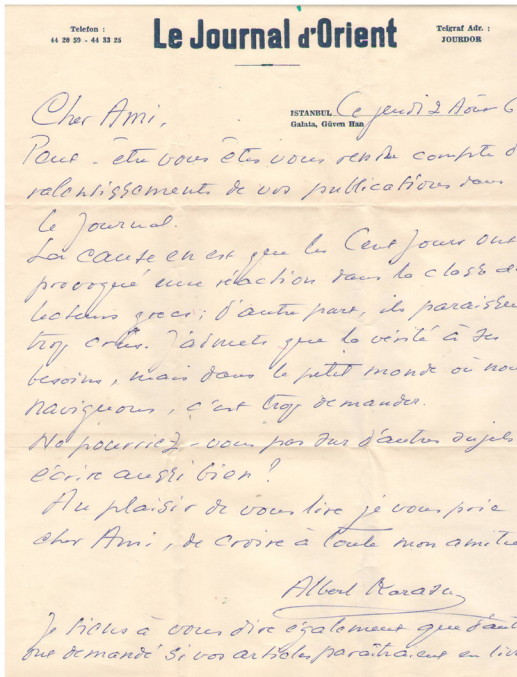 Telefon :
44 20 59 - 44 33 25
Le Journal d'Orient
Telgraf Adr. :
JOURDOR
ISTANBUL Ce jeudi 2 Août 6
Galata, Güven Han
Cher Ami,
Peut-être vous êtes vous rendu compte d
ralentissements de vos publications dans
le Journal.
La cause en est que les Cent Jours ont
provoqué une réaction dans la classe de
lecteurs grecs; d'autre part, ils paraissen
trop crus. J'admets que la vérité à ses
besoins, mais dans le petit monde où nou
naviguons, c'est trop demander.
Ne pourriez-vous pas sur d'autres sujets
écrire aussi bien?
Au plaisir de vous lire je vous prie
cher Ami, de croire à toute mon amitié
Albert Karasu
Je tiens à vous dire également que d'aut
ont demandé si vos articles paraîtraient en liv